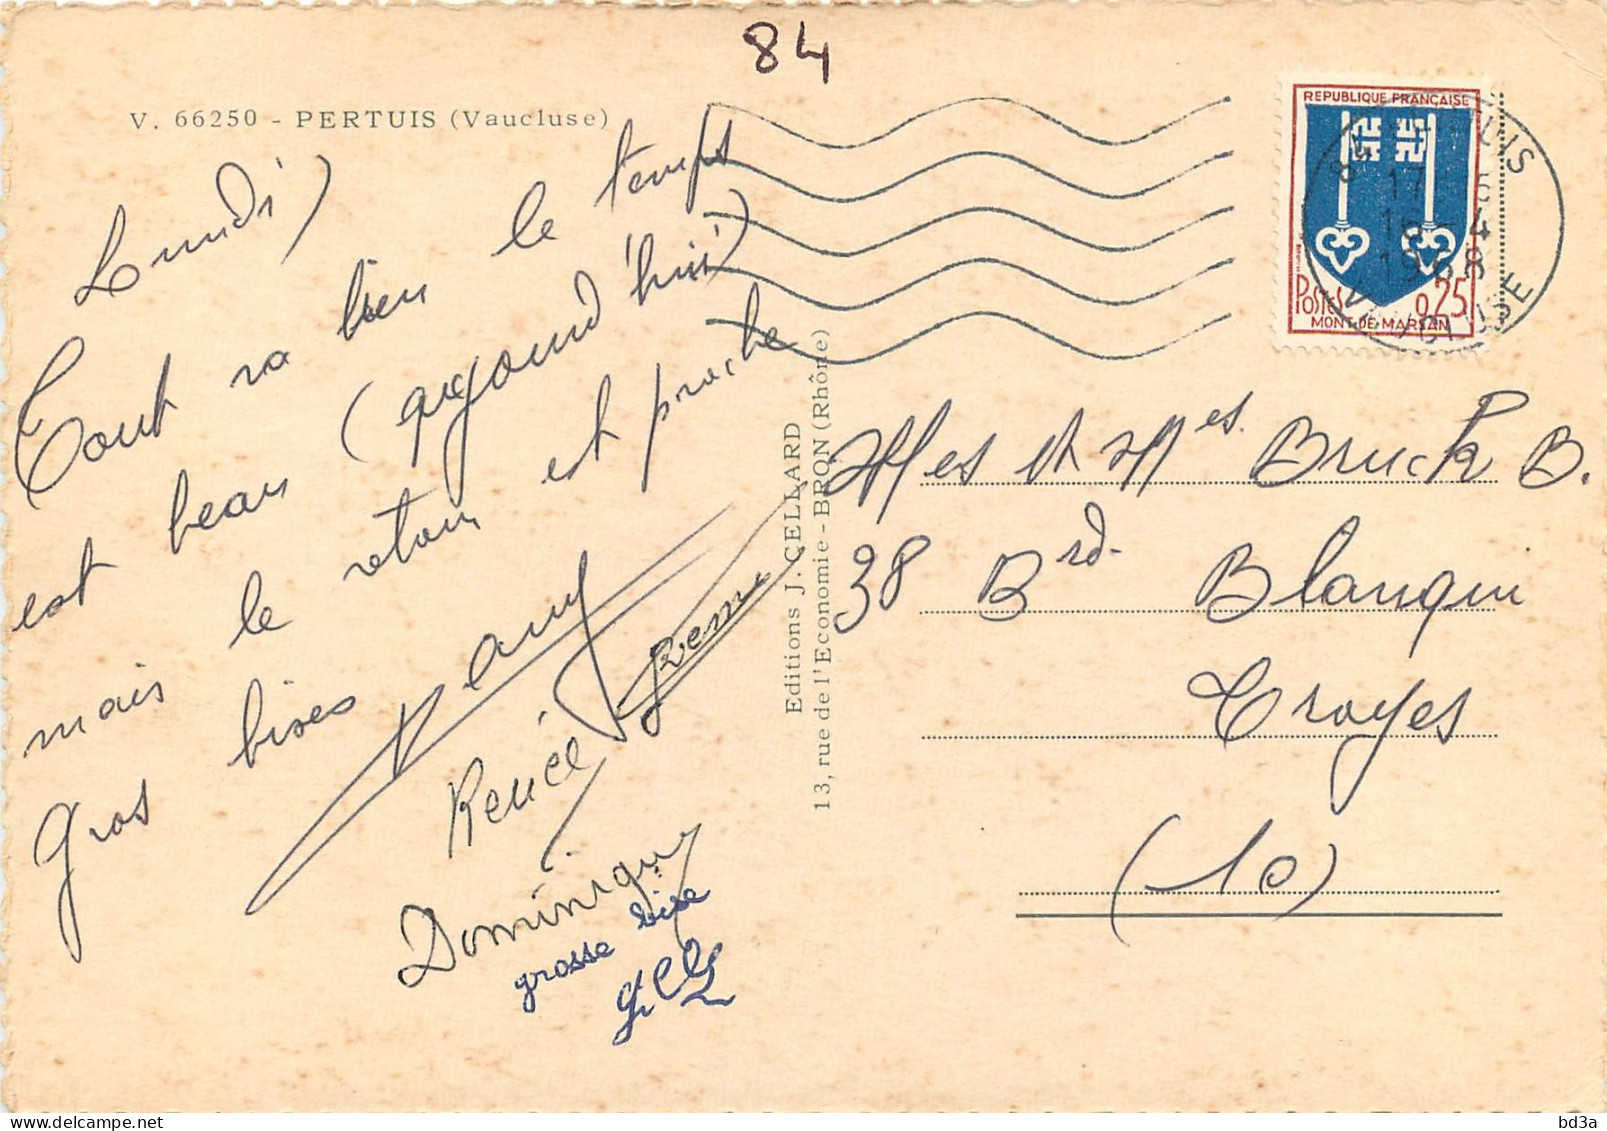 84
V. 66250 - PERTUIS (Vaucluse)
Lundi
Tout va bien le temps
est beau (aujourd'hui)
mais le retour est proche
Gros bises
Renée
Dominique
grosse bise
Editions J. CELLARD
13, rue de l'Economie - BRON (Rhône)
REPUBLIQUE FRANÇAISE
POSTES 0,25
MONT-DE-MARSAN
84
17
16 - 4
1968
VAUCLUSE
Mes et Mes. Bruck B.
38 Brd. Blanqui
Troyes
(10)
bd3a